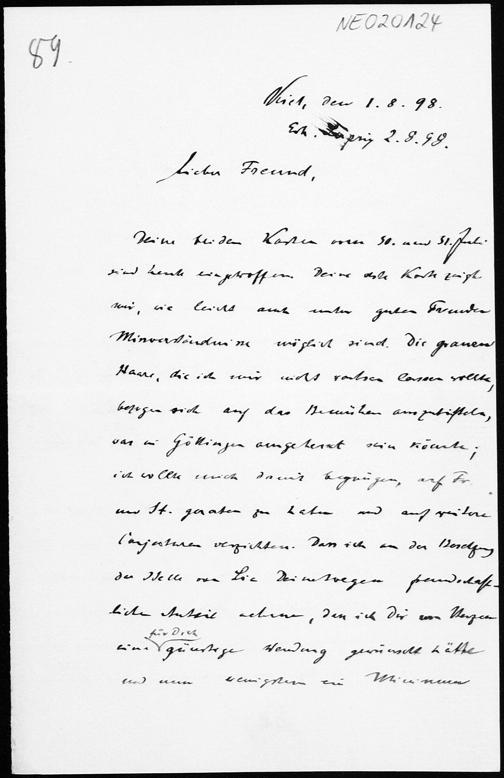 89.
NE020124
Kiel, den 1.8.98.
Erh. Leipzig 2.8.98.
Lieber Freund,
Deine beiden Karten vom 30. und 31. Juli
sind heute eingetroffen. Deine erste Karte zeigt
mir, wie leicht auch unter guten Freunden
Missverständnisse möglich sind. Die grauen
Haare, die ich mir nicht wachsen lassen wollte,
bezogen sich auf das Bemühen auszutüfteln,
was in Göttingen ausgeheckt sein könnte;
ich wollte mich damit begnügen, auf Fr.
und St. geraten zu haben und auf weitere
Conjecturen verzichten. Dass ich an der Besetzung
der Stelle von Lie Deinetwegen freundschaft-
lichen Anteil nehme, dass ich Dir von Herzen
eine für Dich günstige Wendung gewünscht hätte
und nun wenigstens ein Minimum